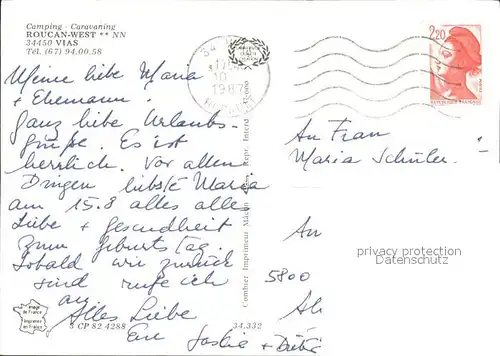 Camping - Caravaning
ROUCAN-WEST ** NN
34450 VIAS
Tél. (67) 94.00.58
34
17
10
1987
HERAULT
2,20
REPUBLIQUE FRANÇAISE
Meine liebe Maria
+ Ehemann.
Ganz liebe Urlaubs-
grüße. Es ist
herrlich. Vor allen
Dingen liebste Maria
am 15.8 alles alles
Liebe + Gesundheit
zum Geburtstag.
Sobald wir zurück
sind rufe ich
an
Alles Liebe
An Frau
Maria Schüler
An
5800
privacy protection
Datenschutz
Combier Imprimeur Mâcon
Repr. Interd
Image
de France
Imprimée
en France
3 CP 82 4288
34.332